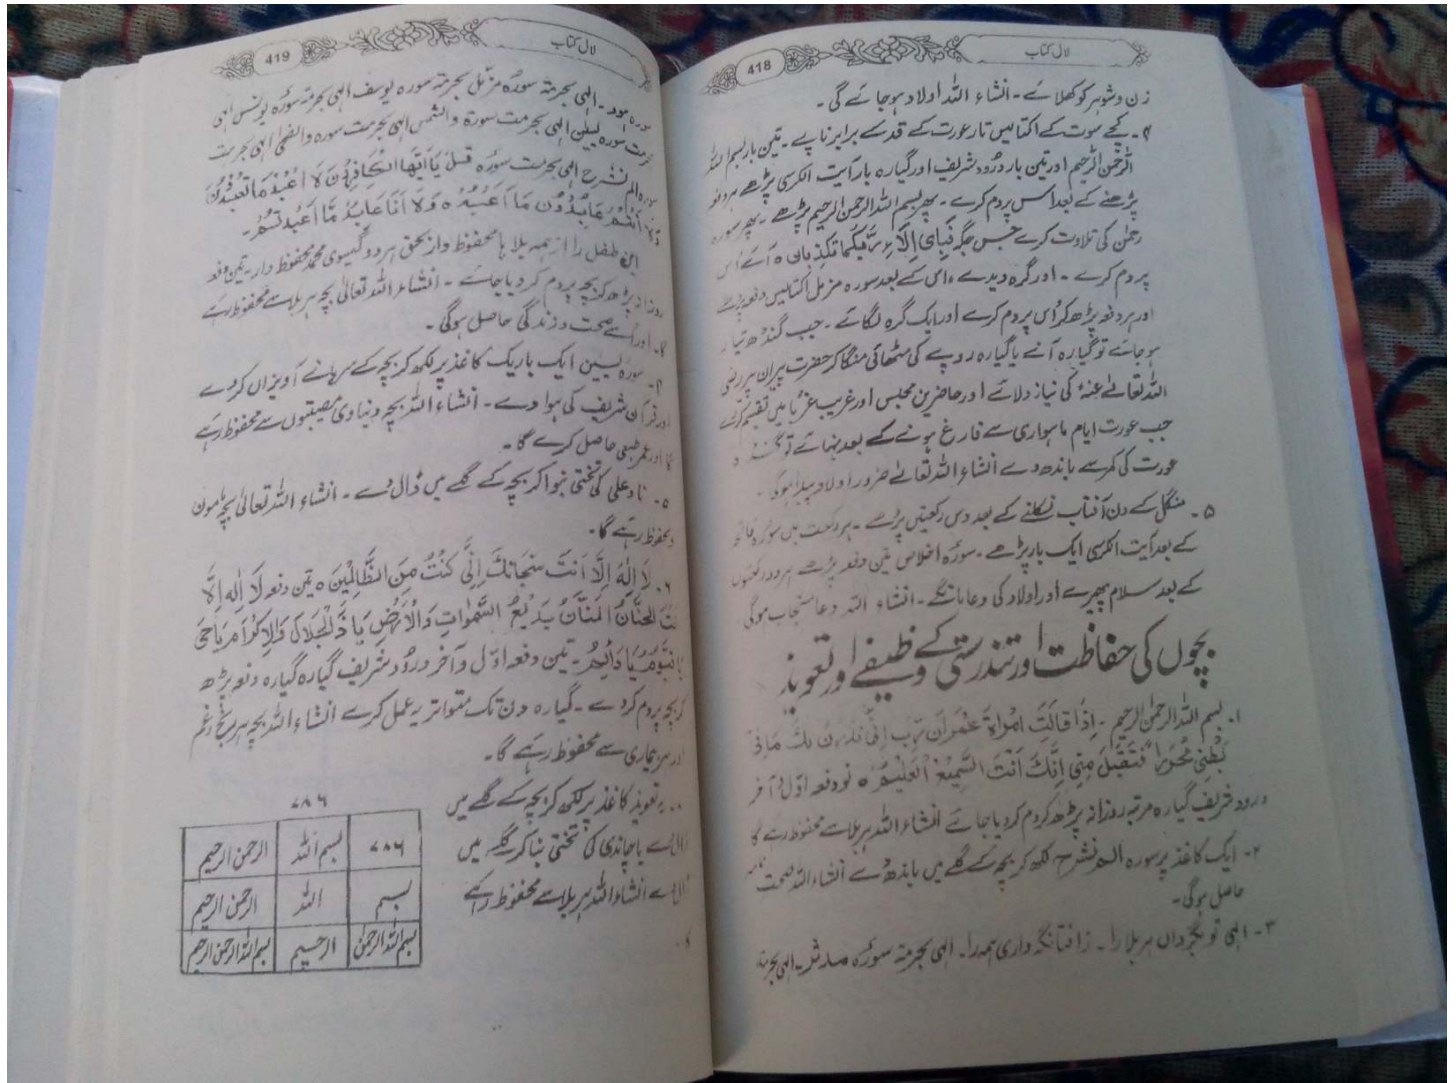 418
لال کتاب
زن و شوہر کو کھلائے۔ انشاء اللہ اولاد ہو جائے گی۔
۴۔ کچے سوت کے اکتالیس تار عورت کے قد کے برابر ناپے۔ تین بار بسم اللہ
الرحمن الرحیم اور تین بار درود شریف اور گیارہ بار آیت الکرسی پڑھے ہر دفعہ
پڑھنے کے بعد اس پر دم کرے۔ پھر بسم اللہ الرحمن الرحیم پڑھے۔ پھر سورہ
رحمٰن کی تلاوت کرے جس جگہ فَبِاَیِّ اٰلَآءِ رَبِّکُمَا تُکَذِّبٰنِ ہ آئے اُس
پر دم کرے۔ اور گرہ دیدے، اس کے بعد سورہ مزمل اکتالیس دفعہ پڑھے
اور ہر دفعہ پڑھ کر اُس پر دم کرے اور ایک گرہ لگائے۔ جب گنڈھ تیار
ہو جائے تو گیارہ آنے یا گیارہ روپے کی مٹھائی منگا کر حضرت پیران پیر رضی
اللہ تعالےٰ عنہٗ کی نیاز دلائے اور حاضرین مجلس اور غریب غربا میں تقسیم کرے
جب عورت ایام ماہواری سے فارغ ہونے کے بعد نہائے تو
عورت کی کمر سے باندھ دے انشاء اللہ تعالےٰ ضرور اولاد پیدا ہوگی۔
۵۔ منگل کے دن آفتاب نکلنے کے بعد دس رکعتیں پڑھے۔ ہر رکعت میں سورہ فاتحہ
کے بعد آیت الکرسی ایک بار پڑھے۔ سورہ اخلاص تین دفعہ پڑھے ہر دو رکعتوں
کے بعد سلام پھیرے اور اولاد کی دعا مانگے۔ انشاء اللہ دعا مستجاب ہوگی
بچوں کی حفاظت اور تندرستی کے وظیفے اور تعویذ
۱۔ بسم اللہ الرحمٰن الرحیم۔ اِذَا قَالَتِ امْرَاَةُ عِمْرَانَ رَبِّ اِنِّی نَذَرْتُ لَكَ مَا فِیْ
بَطْنِیْ مُحَرَّرًا فَتَقَبَّلْ مِنِّی اِنَّكَ اَنْتَ السَّمِیْعُ الْعَلِیْمُ ہ نو دفعہ اوّل آخر
درود شریف گیارہ مرتبہ روزانہ پڑھ کر دم کر دیا جائے انشاء اللہ ہر بلا سے محفوظ رہے گا
۲۔ ایک کاغذ پر سورہ الم نشرح لکھ کر بچہ کے گلے میں باندھ دے انشاء اللہ صحت
حاصل ہوگی۔
۳۔ الہی تو بگرداں ہر بلا را۔ ز آفتا نگہ داری ہمہ را۔ الہی بحرمتہ سورہ مدثر۔ الہی بحرمتہ
419
لال کتاب
سورہ ہود۔ الہی بحرمتہ سورہ مزمل بحرمتہ سورہ یوسف الہی بحرمتہ سورہ یونس الہی
سورہ یٰسین الہی بحرمت سورۃ والشمس الہی بحرمت سورہ والضحٰی الہی بحرمت
سورہ الم نشرح الہی بحرمت سورہ قُلْ یٰۤاَیُّهَا الْکَافِرُوْنَ لَا اَعْبُدُ مَا تَعْبُدُوْنَ
اَنْتُمْ عَابِدُوْنَ مَا اَعْبُدُ ہ وَلَا اَنَا عَابِدٌ مَّا اَعْبَدْتُمْ۔
ایں طفل را از ہمہ بلاہا محفوظ دار بحق ہر دو گیسوی محمد محفوظ دار۔ تین دفعہ
روزانہ پڑھ کر بچہ پر دم کر دیا جائے۔ انشاء اللہ تعالیٰ بچہ ہر بلا سے محفوظ رہے
گا۔ اور اُسے صحت و زندگی حاصل ہوگی۔
۴۔ سورہ یٰسین ایک باریک کاغذ پر لکھ کر بچہ کے سرہانے آویزاں کر دے
اور قرآن شریف کی ہوا دے۔ انشاء اللہ بچہ دنیاوی مصیبتوں سے محفوظ رہے
گا اور عمر طبعی حاصل کرے گا۔
۵۔ ناد علی کی تختی بنوا کر بچہ کے گلے میں ڈال دے۔ انشاء اللہ تعالیٰ بچہ مامون
و محفوظ رہے گا۔
۶۔ لَا اِلٰهَ اِلَّا اَنْتَ سُبْحَانَكَ اِنِّی کُنْتُ مِنَ الظَّالِمِیْنَ ہ تین دفعہ لَا اِلٰهَ اِلَّا
اَنْتَ الْحَنَّانُ الْمَنَّانُ بَدِیْعُ السَّمٰوٰاتِ وَالْاَرْضِ یَا ذَالْجَلَالِ وَالْاِکْرَامِ یَا حَیُّ
یَا قَیُّوْمُ یَا دَائِمُ۔ تین دفعہ اوّل و آخر درود شریف گیارہ گیارہ دفعہ پڑھ
کر بچہ پر دم کر دے۔ گیارہ دن تک متواتر یہ عمل کرے انشاء اللہ بچہ ہر رنج و غم
اور ہر بیماری سے محفوظ رہے گا۔
یہ تعویذ کاغذ پر لکھ کر بچہ کے گلے میں
ڈال دے یا چاندی کی تختی بنا کر گلے میں
ڈال دے انشاء اللہ ہر بلا سے محفوظ رہے
گا۔
۷۸۶
۷۸۶ بسم اللہ الرحمن الرحیم
بسم اللہ الرحمن الرحیم
بسم اللہ الرحمن الرحیم بسم اللہ الرحمن الرحیم